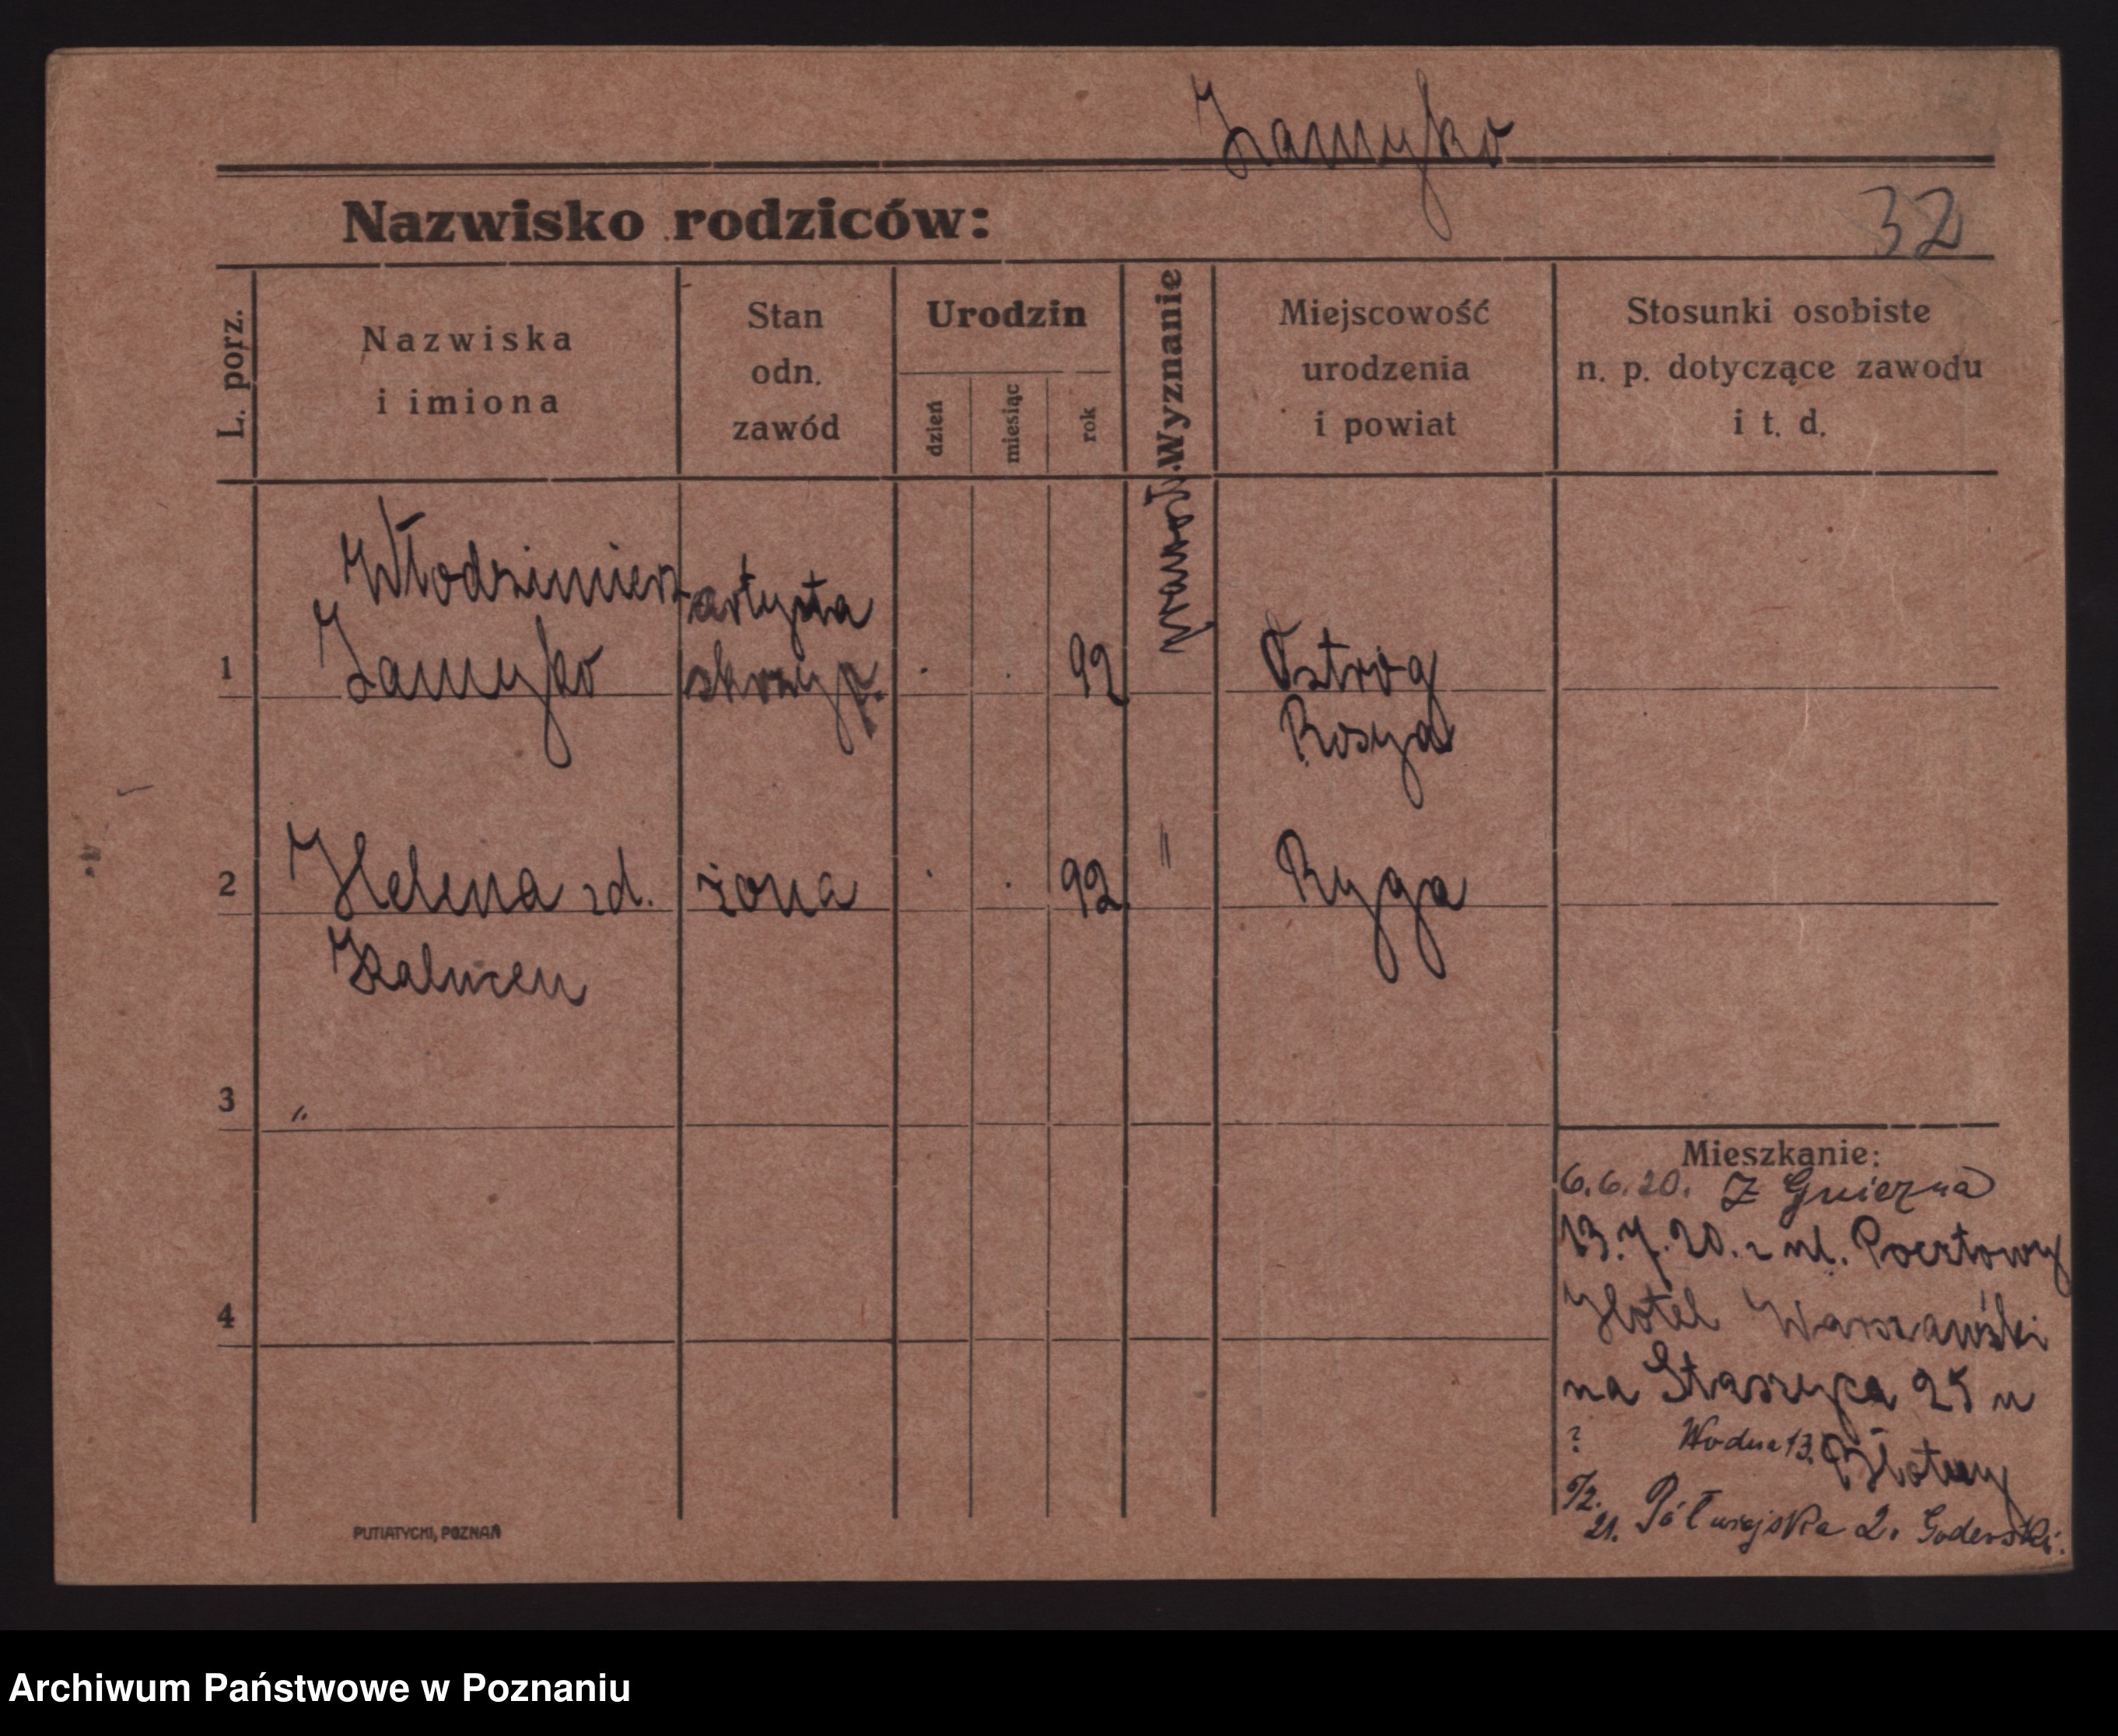 Zamyko
Nazwisko rodziców:
32
L. porz.
Nazwiska
i imiona
Stan
odn.
zawód
Urodzin
dzień
miesiąc
rok
Wyznanie
Miejscowość
urodzenia
i powiat
Stosunki osobiste
n. p. dotyczące zawodu
i t. d.
1
Włodzimierz
Zamyko
artysta
skrzyp.
92
prawosł.
Ostróg
Rosya
2
Helena zd.
żona
92
"
Ryga
3
4
Mieszkanie:
6.6.20. Z Gniezna
13.7.20. z ul. Pocztowy
Hotel Warszawski
na Staszyca 25 u
? Wodna 13.
21. Półwiejska 2.
PUTIATYCKI, POZNAŃ
Archiwum Państwowe w Poznaniu